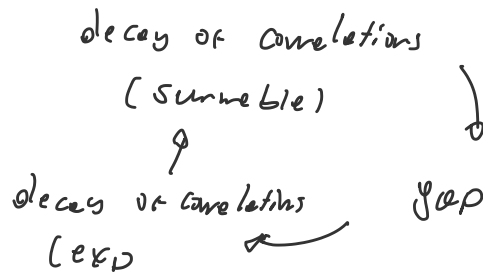 decay of correlations
(summable)
decay of correlations
gap
(exp